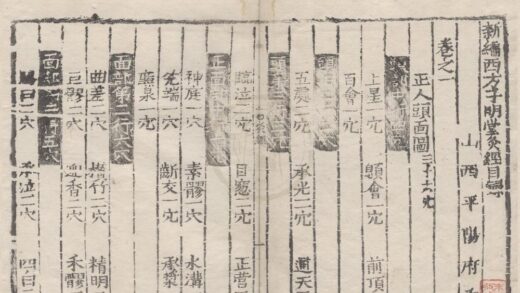 新編西方子明堂灸經目錄
山西平陽府
卷之一
正人頭面圖三十六穴
上星一穴 顖會一穴 前頂
百會一穴
五處二穴 承光二穴 通天
臨泣二穴 目窓二穴 正營二
神庭一穴 素髎一穴 水溝
兌端一穴 斷交一穴 承漿
廉泉一穴
面部第二行六穴
曲差二穴 攅竹二穴 精明
巨髎二穴 迎香二穴 禾髎
面部第三行
陽白二穴 承泣二穴 四白二